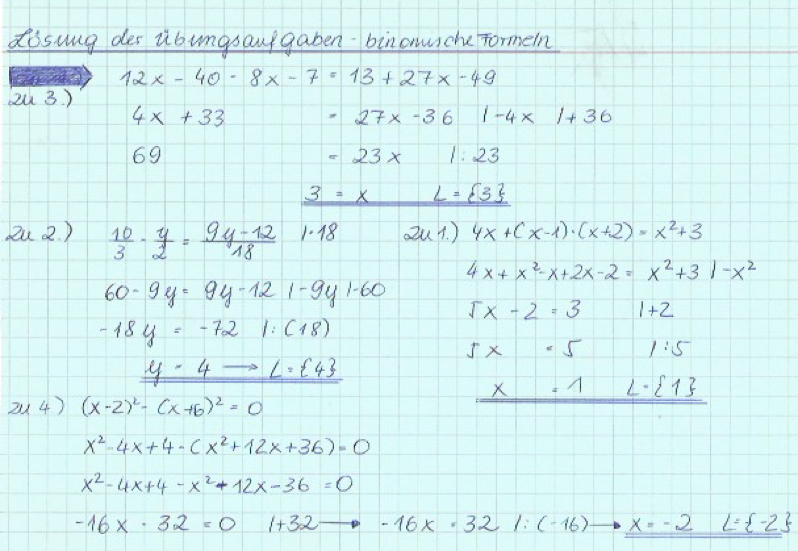 Lösung der Übungsaufgaben - binomische Formeln
12x - 40 - 8x - 7 = 13 + 27x - 49
zu 3.)
4x + 33 = 27x - 36 | -4x | +36
69 = 23x | : 23
3 = x L = {3}
zu 2.) 10/3 - y/2 = (9y - 12)/18 | · 18
60 - 9y = 9y - 12 | -9y | -60
-18y = -72 | : (18)
y = 4 → L = {4}
zu 1.) 4x + (x-1) · (x+2) = x² + 3
4x + x² - x + 2x - 2 = x² + 3 | -x²
5x - 2 = 3 | +2
5x = 5 | : 5
x = 1 L = {1}
zu 4) (x-2)² - (x+6)² = 0
x² - 4x + 4 - (x² + 12x + 36) = 0
x² - 4x + 4 - x² - 12x - 36 = 0
-16x - 32 = 0 | +32 → -16x = 32 | : (-16) → x = -2 L = {-2}